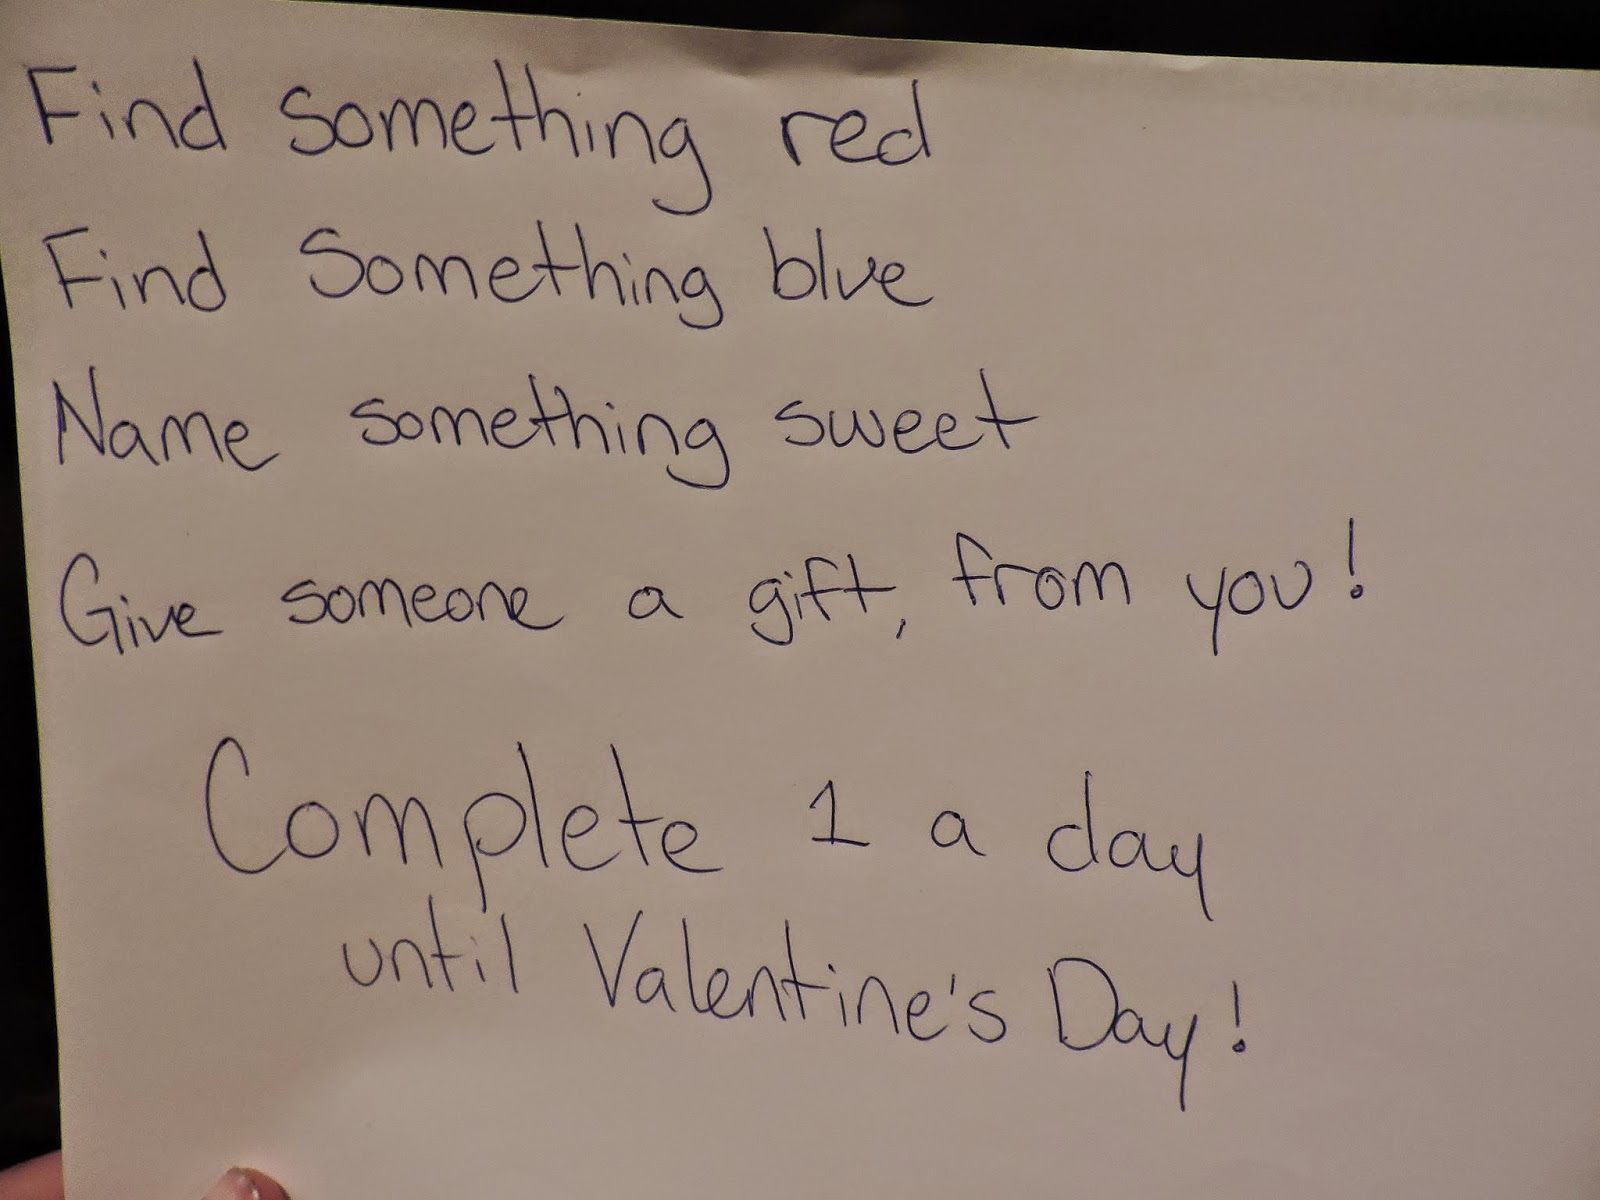 Find something red
Find Something blue
Name something sweet
Give someone a gift, from you!
Complete 1 a day
until Valentine's Day!